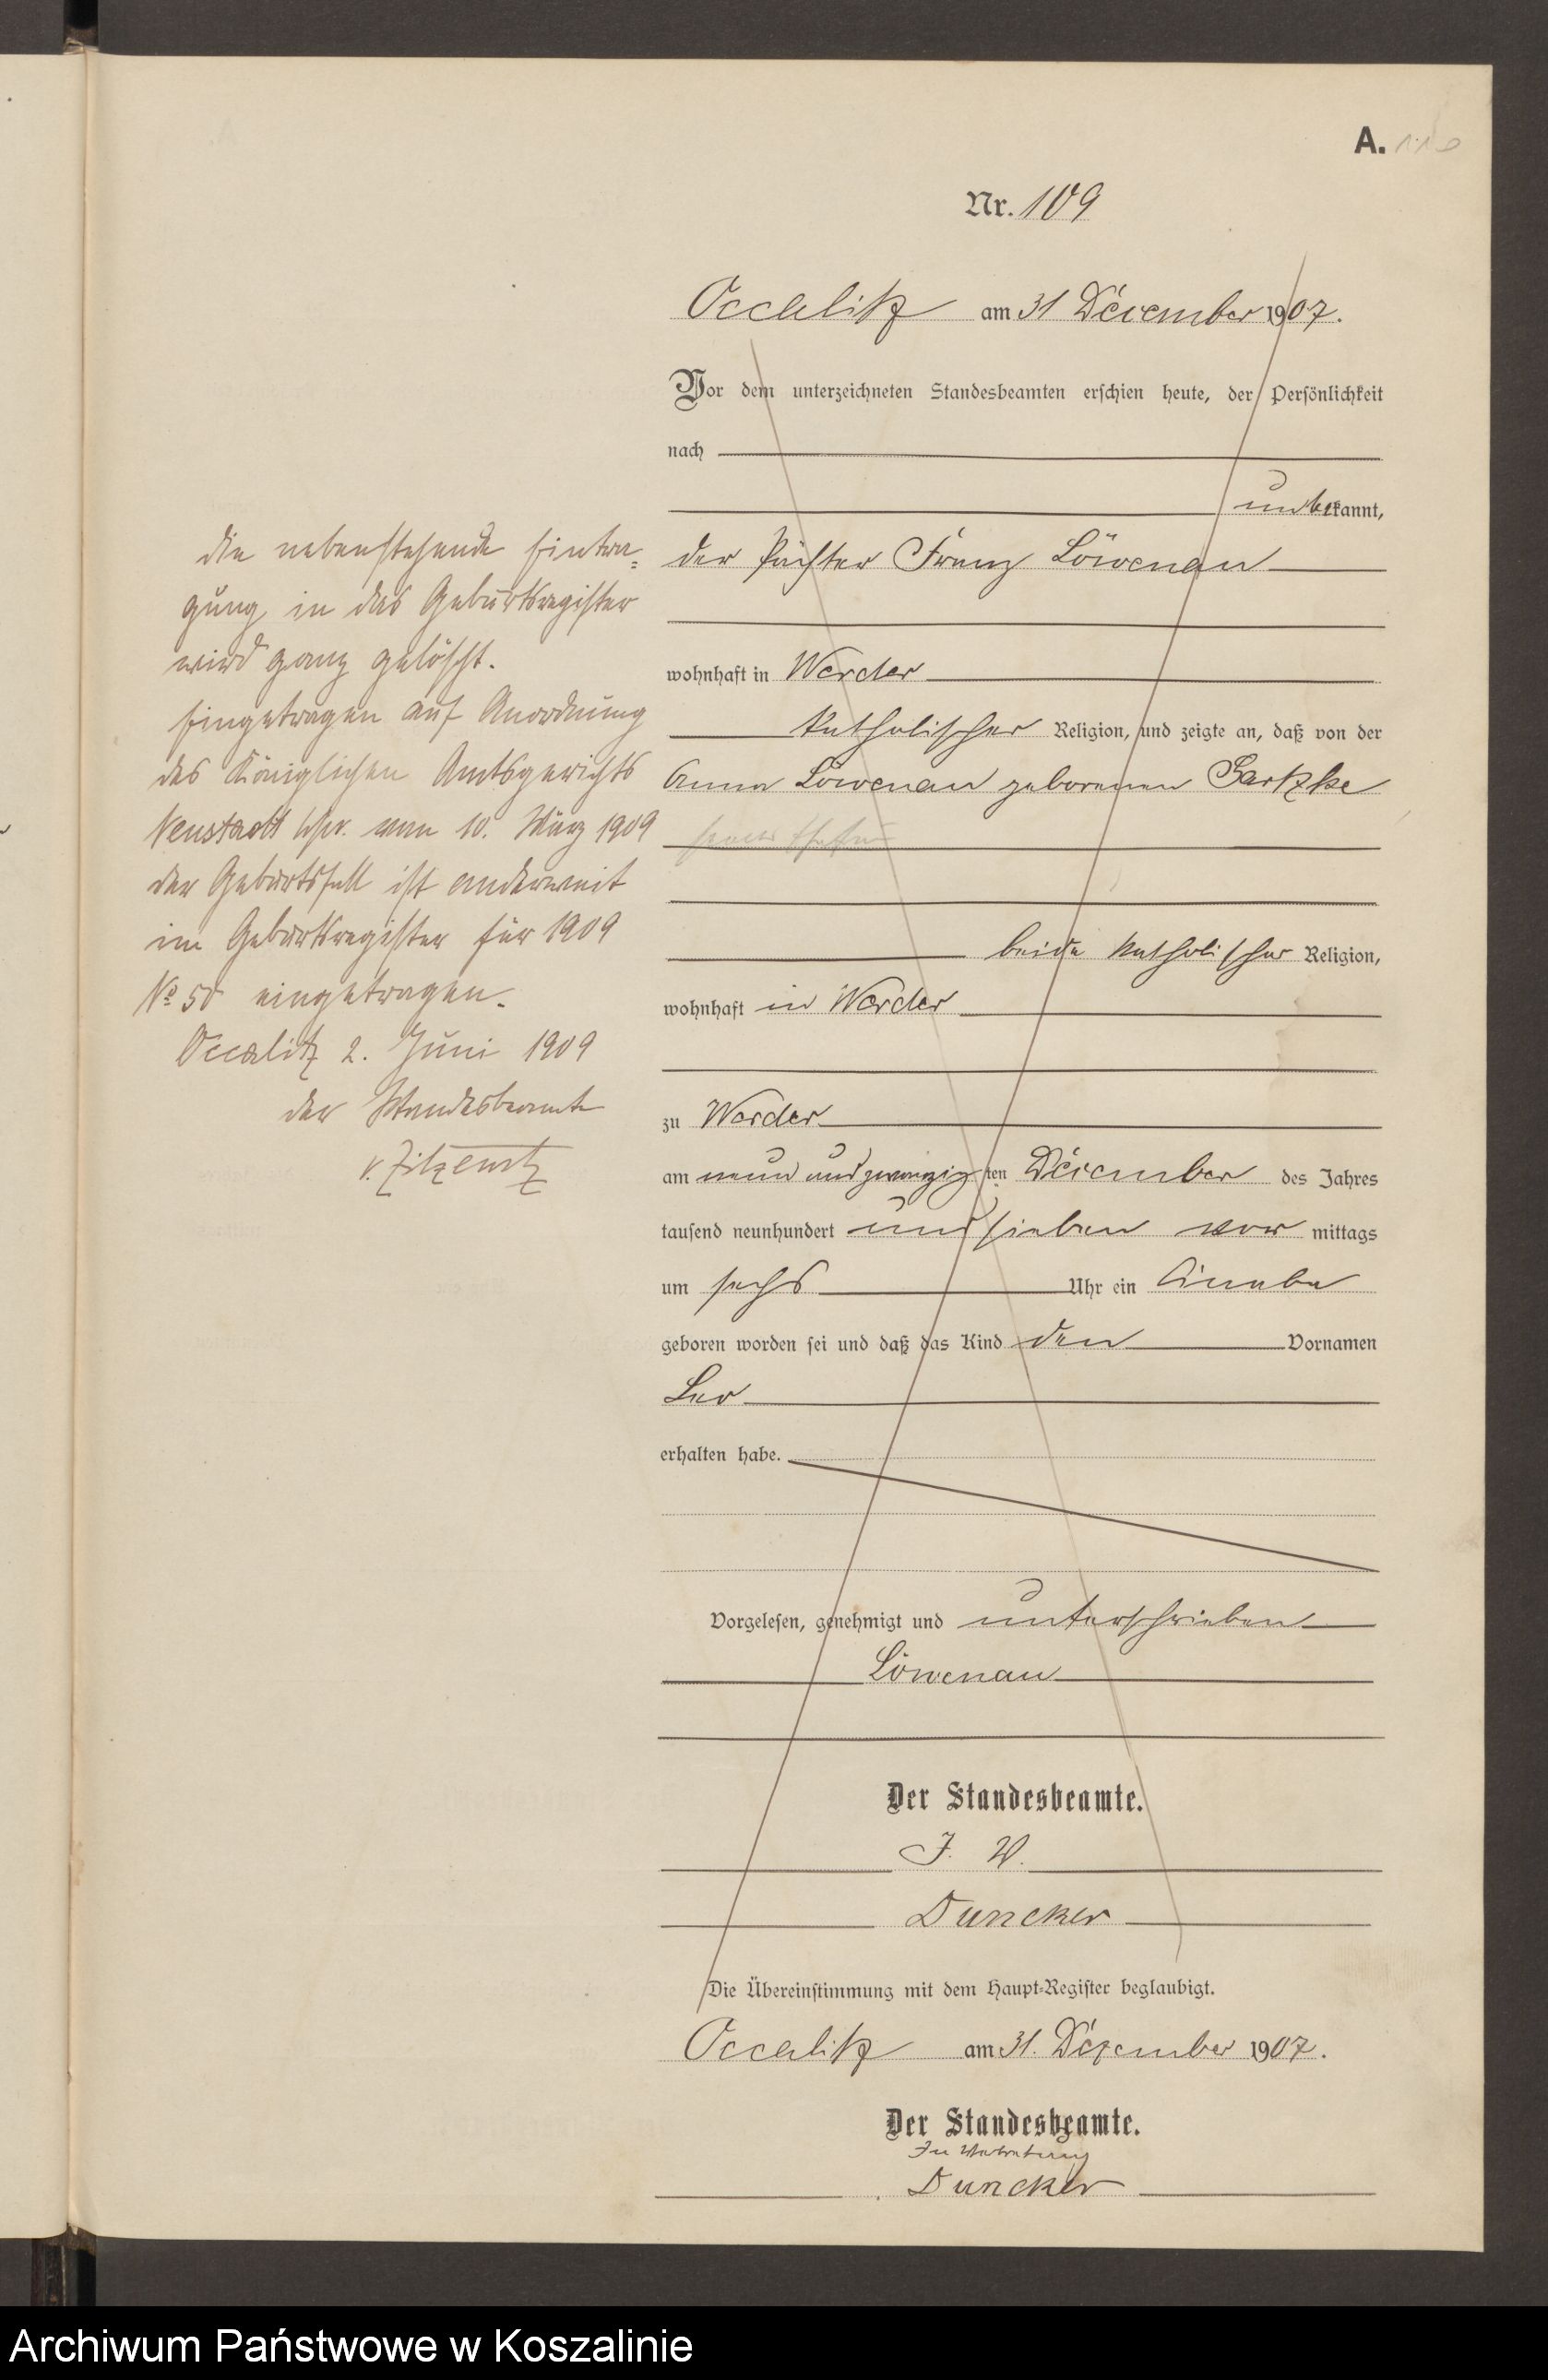 A. 110
Nr. 109
Occalitz am 31 December 1907.
Vor dem unterzeichneten Standesbeamten erschien heute, der Persönlichkeit
nach
und bekannt,
der Pächter Franz Löwenau
wohnhaft in Werder
katholischer Religion, und zeigte an, daß von der
Anna Löwenau geborenen Gartzke
seiner Ehefrau
beide katholischer Religion,
wohnhaft in Werder
zu Werder
am neun und zwanzigsten December des Jahres
tausend neunhundert und sieben vor mittags
um sechs Uhr ein Knabe
geboren worden sei und daß das Kind den Vornamen
Leo
erhalten habe.
Vorgelesen, genehmigt und unterschrieben
Löwenau
Der Standesbeamte.
J. V.
Duncker
Die Übereinstimmung mit dem Haupt-Register beglaubigt.
Occalitz am 31. Dezember 1907.
Der Standesbeamte.
In Vertretung
Duncker
Die nebenstehende Eintra-
gung in das Geburtsregister
wird ganz gelöscht.
Eingetragen auf Anordnung
des Königlichen Amtsgerichts
Neustadt Wpr. vom 10. März 1909
der Geburtsfall ist anderweit
im Geburtsregister für 1909
No 50 eingetragen.
Occalitz 2. Juni 1909
der Standesbeamte
v. Zitzewitz
Archiwum Państwowe w Koszalinie